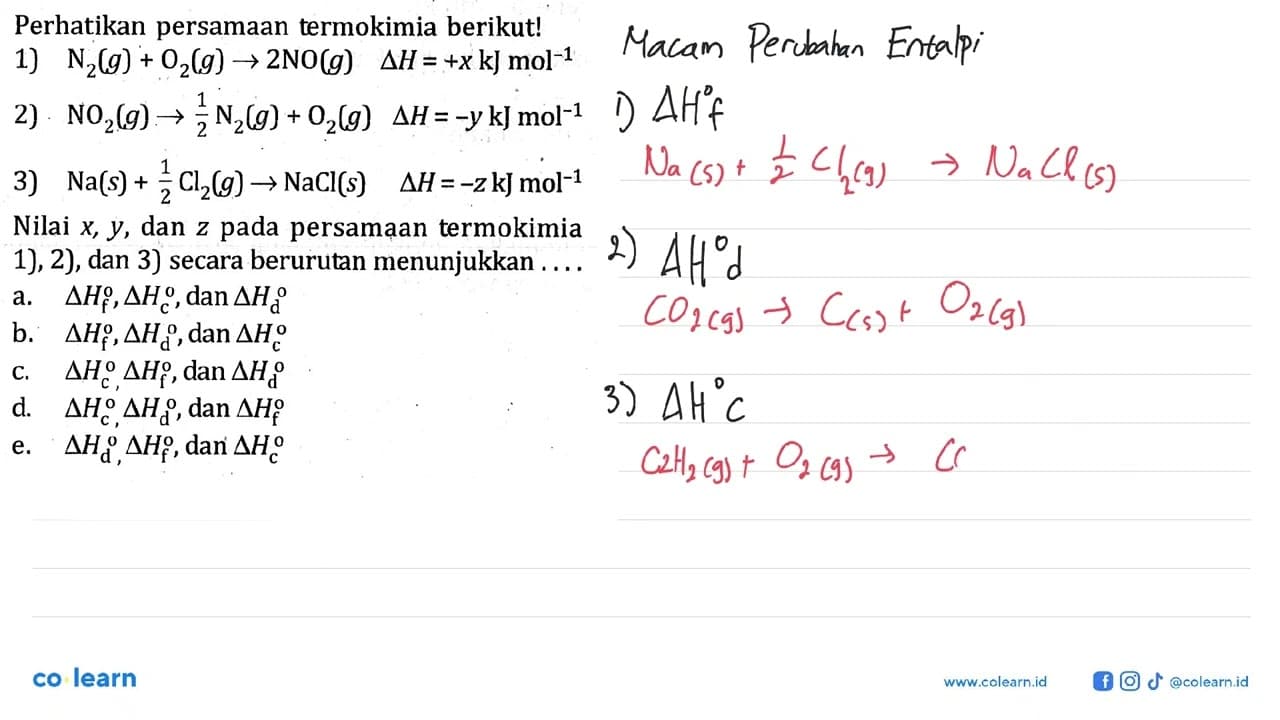 Perhatikan persamaan termokimia berikut!
1) N₂(g) + O₂(g) → 2NO(g) ΔH = +x kJ mol⁻¹
2) NO₂(g) → 1/2 N₂(g) + O₂(g) ΔH = –y kJ mol⁻¹
3) Na(s) + 1/2 Cl₂(g) → NaCl(s) ΔH = –z kJ mol⁻¹
Nilai x, y, dan z pada persamaan termokimia
1), 2), dan 3) secara berurutan menunjukkan ....
a. ΔH_f°, ΔH_c°, dan ΔH_d°
b. ΔH_f°, ΔH_d°, dan ΔH_c°
c. ΔH_c°, ΔH_f°, dan ΔH_d°
d. ΔH_c°, ΔH_d°, dan ΔH_f°
e. ΔH_d°, ΔH_f°, dan ΔH_c°
Macam Perubahan Entalpi
1) ΔH°f
Na (s) + 1/2 Cl₂(g) → NaCl (s)
2) ΔH°d
CO₂(g) → C(s) + O₂(g)
3) ΔH°c
C₂H₂(g) + O₂(g) → C
co learn
www.colearn.id
@colearn.id